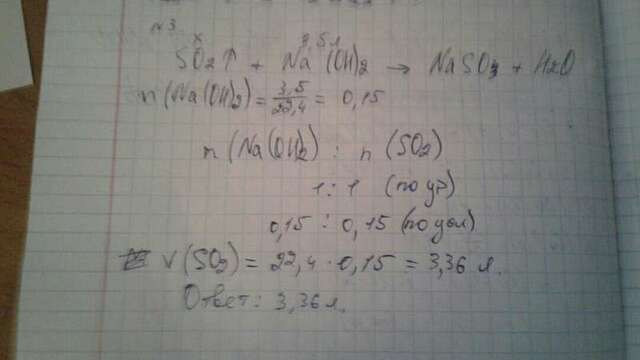 №3
x 3,5л
SO₂↑ + Na(OH)₂ → NaSO₃ + H₂O
n(Na(OH)₂) = 3,5/22,4 = 0,15
n(Na(OH)₂) : n(SO₂)
1 : 1 (по ур)
0,15 : 0,15 (по усл)
V(SO₂) = 22,4 · 0,15 = 3,36 л.
Ответ: 3,36 л.